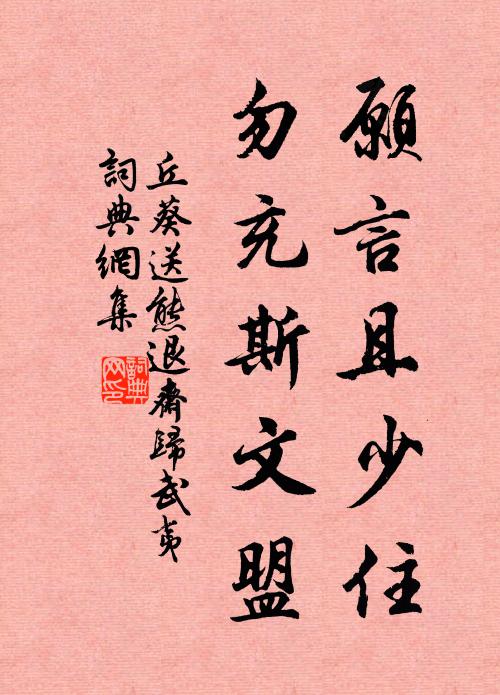 願言且少住
勿充斯文盟
丘葵送熊退齋歸武夷
詞典網集
詞典
网印